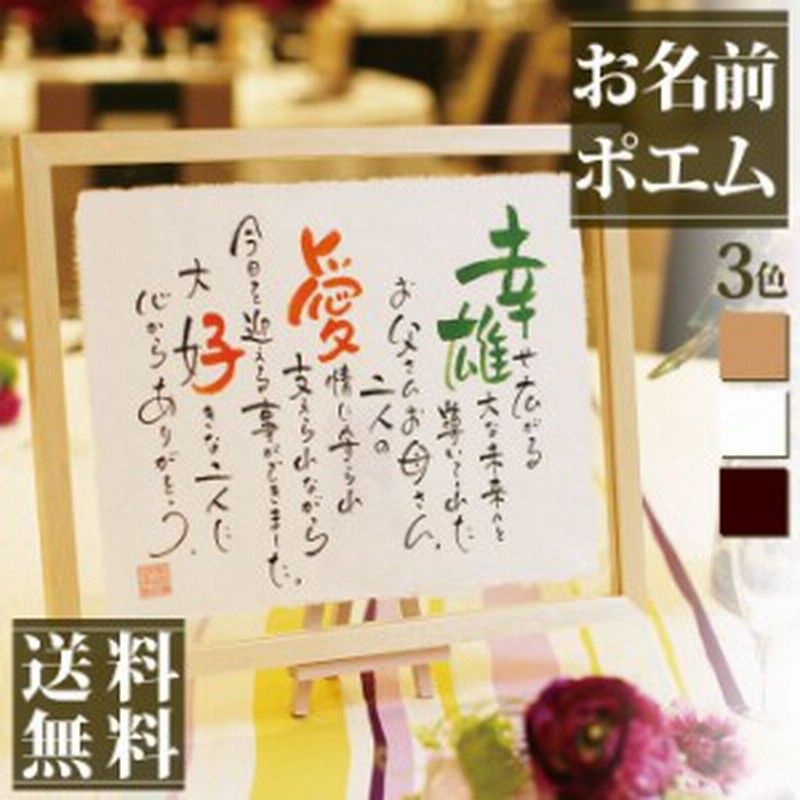 お名前
ポエム
3色
幸せ広がる
雄大な未来へと
導いてくれた
お父さんお母さん。
二人の
愛情に守られ
支えられながら
今日を迎える事ができました。
大好きな二人に
心からありがとう。
送料
無料